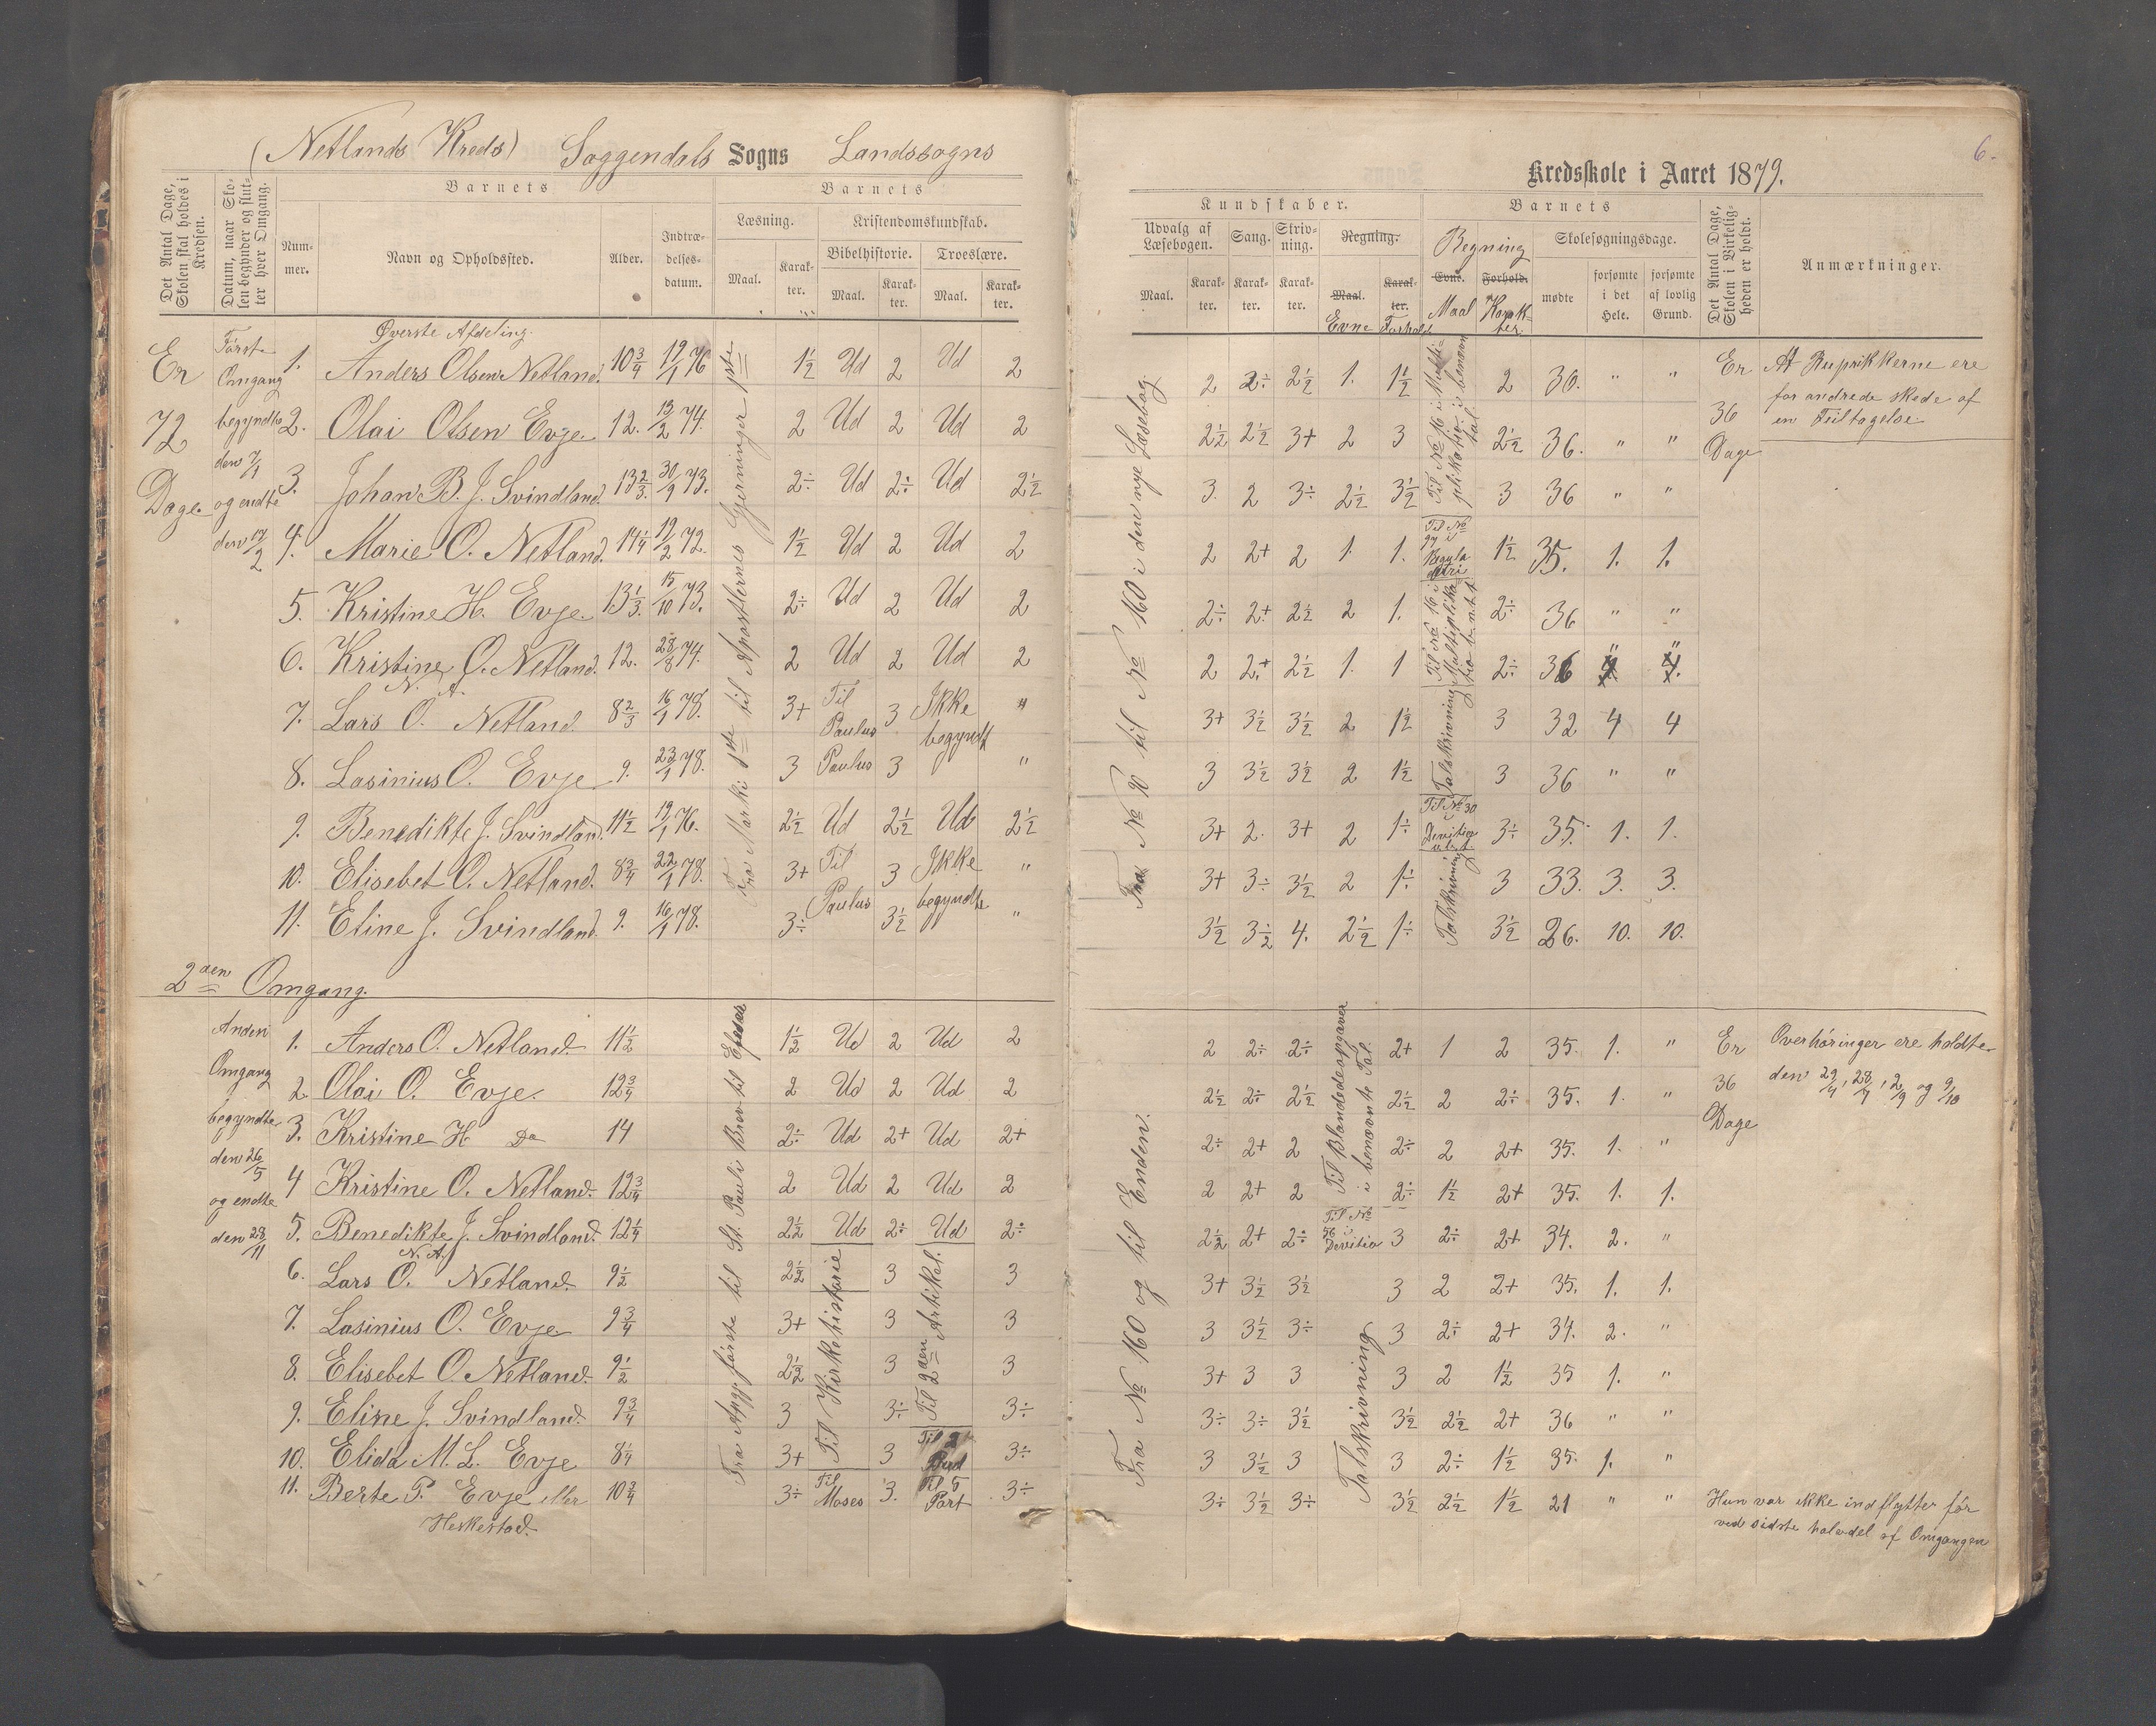 (Netlands Kreds) Soggendals Sogns Landssogns
6.
Kredsskole i Aaret 1879.
Det Antal Dage, Skolen skal holdes i Kredsen.
Datum, naar Skolen begynder og slutter hver Omgang.
Barnets
Nummer.
Navn og Opholdssted.
Alder.
Indtrædelsesdatum.
Barnets
Læsning.
Maal.
Karakter.
Kristendomskundskab.
Bibelhistorie.
Maal.
Karakter.
Troeslære.
Maal.
Karakter.
Kundskaber.
Udvalg af Læsebogen.
Maal.
Karakter.
Sang.
Karakter.
Skrivning.
Karakter.
Regning.
Maal.
Evne
Karakter.
Forhold
Barnets
Regning
Evne.
Maal
Forhold.
Karakter.
Skolesøgningsdage.
mødte
forsømte i det Hele.
forsømte af lovlig Grund.
Det Antal Dage, Skolen i Virkeligheden er holdt.
Anmærkninger.
Øverste Afdeling.
Er 72 Dage.
Første Omgang begyndte den 7/1 og endte den 17/2
1. Anders Olsen Netland. 10 3/4 19/1 76 1 1/2 Ud 2 Ud 2
2. Olai Olsen Evje. 12. 13/2 74. 2 Ud 2 Ud 2
3. Johan B. J. Svindland. 13 2/3. 30/9 73. 2÷ Ud 2÷ Ud 2 1/2
4. Marie O. Netland. 14 1/4 19/2 72. 1 1/2 Ud 2 Ud 2
5. Kristine H. Evje. 13 1/3. 15/10 73. 2÷ Ud 2 Ud 2
6. Kristine O. Netland. 12. 28/8 74. 2 Ud 2 Ud 2
N. A.
7. Lars O. Netland 8 2/3 16/1 78. 3+ Til Paulus 3 Ikke begyndt "
8. Lasinius O. Evje 9. 23/1 78. 3 Paulus 3 "
9. Benedikte J. Svindland. 11 1/2 19/1 76. 2 1/2 Ud 2 1/2 Ud 2 1/2
10. Elisebet O. Netland. 8 3/4 22/1 78. 3+ Til Paulus 3 Ikke begyndte "
11. Eline J. Svindland. 9. 16/1 78. 3÷ 3 1/2 "
Fra Marki 1ste til Apostlernes Gjerninger 1ste
Fra No 10 til No 160 i den nye Læsebog.
2 2÷ 2 1/2 1. 1 1/2 2 36. " "
2 1/2 2 1/2 3+ 2 3 2 1/2 36. " "
3. 2 3÷ 2 1/2 3 1/2 3 36 " "
2 2+ 2 1. 1. 1 1/2 35. 1. 1.
2÷ 2+ 2 1/2 2 1. 2÷ 36 " "
2 2+ 2 1/2 1. 1 2÷ 36 " "
3+ 3 1/2 3 1/2 2 1 1/2 3 32 4 4
3 3 1/2 3 1/2 2 1 1/2 3 36 " "
3+ 2. 3+ 2 1÷ 3÷ 35. 1. 1.
3+ 3÷ 3 1/2 2 1÷ 3 33. 3. 3.
3 1/2 3 1/2 4. 2 1/2 1÷ 3 1/2 26. 10. 10.
Talskrivning
Til No 30 i Devition
Talskrivning
Er 36 Dage
At Ruprikkerne ere
forandrede skede af
en Feiltagelse.
2den Omgang.
Anden Omgang begyndte den 26/5 og endte den 28/11
1. Anders O. Netland. 11 1/2 1 1/2 Ud 2 Ud 2
2. Olai O. Evje. 12 3/4 2 Ud 2 Ud 2
3. Kristine H Do 14 2÷ Ud 2+ Ud 2+
4 Kristine O. Netland. 12 3/4 2 Ud 2 Ud 2
5. Benedikte J. Svindland. 12 1/4 2 1/2 Ud 2÷ Ud 2÷
N. A.
6. Lars O. Netland. 9 1/2 2 1/2 3 3
7. Lasinius O. Evje. 9 3/4 3+ 3 3
8. Elisebet O. Netland. 9 1/2 2 1/2 3 3
9. Eline J. Svindland. 9 3/4 3 3÷ 3÷
10. Elida M. L. Evje 8 1/4 3+ 3 Til 2 Bud 3÷
11. Berte P. Evje eller 10 3/4 3÷ Til Moses 3. Til 5 Part 3÷
Heskestad.
Fra Apgj. første til St. Pauli Brev til Efeser
Til Kirkehistorie
Til 2den Artikel.
Fra No 160 og til Enden.
Til Blandedeopgaver i benævnte Tal.
Til No 56 i Devition
Talskrivning
2 2÷ 2÷ 2+ 1 2 35. 1. "
2 1/2 2÷ 2 1/2 2 1/2 2 2÷ 35. 1. "
2÷ 2+ 2 2÷ 2 2+ 35. 1. "
2 2+ 2 2÷ 1 1/2 2+ 35. 1. 1.
2 1/2 2+ 2÷ 3 2÷ 2+ 34. 2. "
3+ 3 1/2 3 1/2 3 2 2+ 35. 1. 1.
3 3 1/2 3÷ 3 2÷ 2+ 34. 2. "
3+ 3 3 3 2 1 1/2 35 1. "
3÷ 3÷ 3 1/2 3 1/2 2 1/2 2+ 36 " "
3 3 1/2 3 3 2÷ 1 1/2 35. 1. "
3÷ 3 1/2 3÷ 3 1/2 2 1/2 1 1/2 21 " "
Er 36 Dage
Overhøringer ere holdte
den 29/4, 28/7, 2/9 og 9/10
Hun var ikke indflytter før
ved sidste halvdel af Omgangen